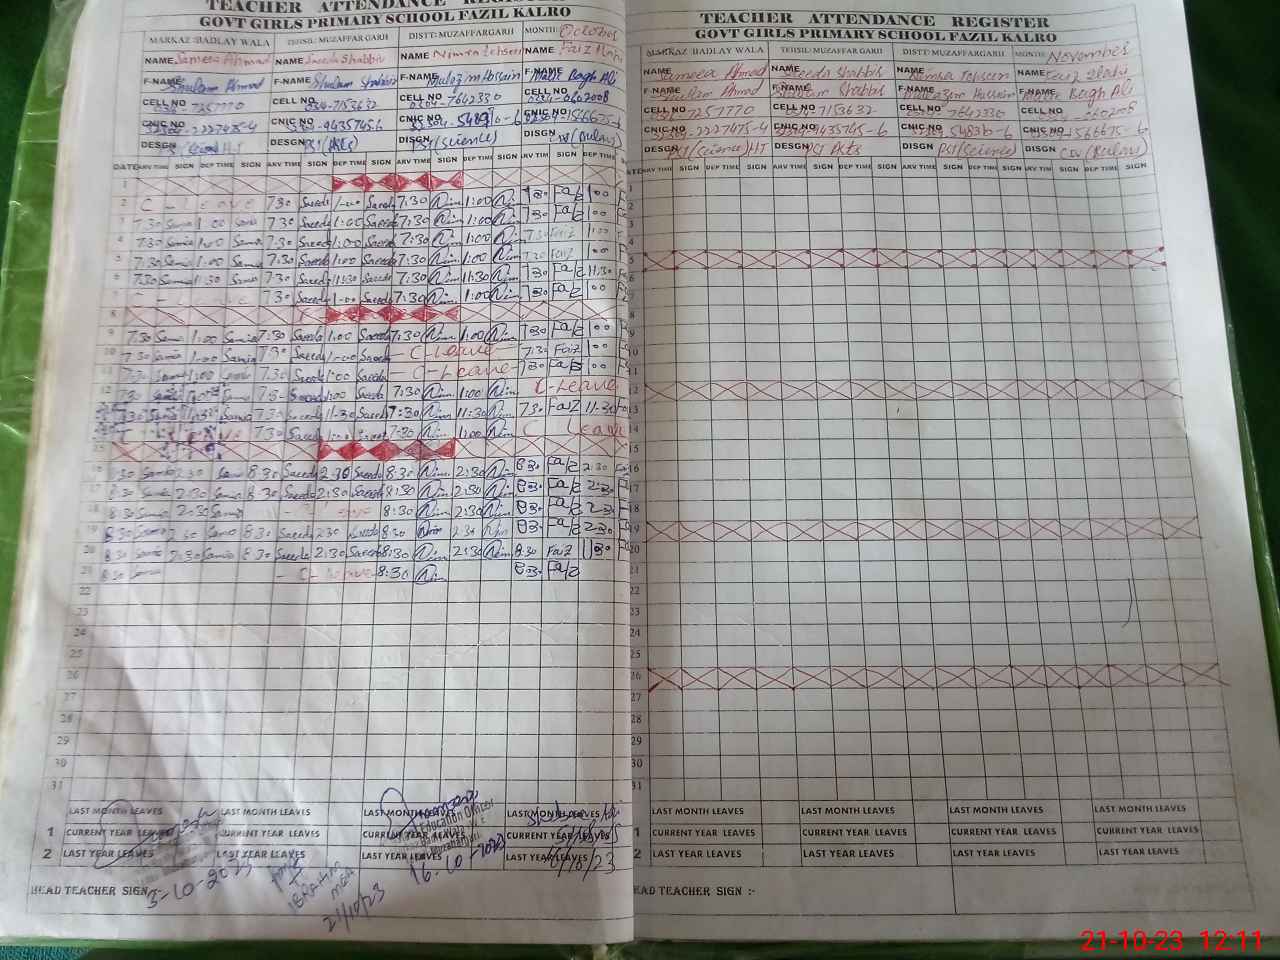 TEACHER ATTENDANCE REGISTER
GOVT GIRLS PRIMARY SCHOOL FAZIL KALRO
MARKAZ :BADLAY WALA TEHSIL: MUZAFFAR GARH DISTT: MUZAFFARGARH MONTH: October
NAME Sameea Ahmad NAME Saeeda Shabbir NAME Nimra NAME Faiz
F-NAME Ghulam Ahmad F-NAME Ghulam Shabbir F-NAME Hussain F-NAME Malik Bagh Ali
CELL NO 7257770 CELL NO 7153632 CELL NO 7642330 CELL NO 0602008
CNIC NO CNIC NO CNIC NO CNIC NO
DESGN DESGN PST (Arts) DISGN PST (Science) DISGN
DATE ARV TIME SIGN DEP TIME SIGN ARV TIME SIGN DEP TIME SIGN ARV TIME SIGN DEP TIME SIGN ARV TIME SIGN DEP TIME SIGN
1
2 C - Leave 7:30 Saeeda 1:00 Saeeda 7:30 Nim 1:00 Nim 7:30 Faiz 1:00
3 7:30 Samia 1:00 Samia 7:30 Saeeda 1:00 Saeeda 7:30 Nim 1:00 Nim 7:30 Faiz 1:00
4 7:30 Samia 1:00 Samia 7:30 Saeeda 1:00 Saeeda 7:30 Nim 1:00 Nim 7:30 Faiz 1:00
5 7:30 Samia 1:00 Samia 7:30 Saeeda 1:00 Saeeda 7:30 Nim 1:00 Nim 7:30 Faiz 1:00
6 7:30 Samia 11:30 Samia 7:30 Saeeda 11:30 Saeeda 7:30 Nim 11:30 Nim 7:30 Faiz 11:30
7 C - Leave 7:30 Saeeda 1:00 Saeeda 7:30 Nim 1:00 Nim 7:30 Faiz 1:00
8
9 7:30 Samia 1:00 Samia 7:30 Saeeda 1:00 Saeeda 7:30 Nim 1:00 Nim 7:30 Faiz 1:00
10 7:30 Samia 1:00 Samia 7:30 Saeeda 1:00 Saeeda - C - Leave - 7:30 Faiz 1:00
11 7:30 Samia 1:00 Samia 7:30 Saeeda 1:00 Saeeda - C - Leave - 7:30 Faiz 1:00
12 7:30 Samia 1:00 Samia 7:30 Saeeda 1:00 Saeeda 7:30 Nim 1:00 Nim C-Leave
13 7:30 Samia 11:30 Samia 7:30 Saeeda 11:30 Saeeda 7:30 Nim 11:30 Nim 7:30 Faiz 11:30
14 C Leave 7:30 Saeeda 1:00 Saeeda 7:30 Nim 1:00 Nim C Leave
15
16 8:30 Samia 2:30 Samia 8:30 Saeeda 2:30 Saeeda 8:30 Nim 2:30 Nim 8:30 Faiz 2:30
17 8:30 Samia 2:30 Samia 8:30 Saeeda 2:30 Saeeda 8:30 Nim 2:30 Nim 8:30 Faiz 2:30
18 8:30 Samia 2:30 Samia - C - Leave 8:30 Nim 2:30 Nim 8:30 Faiz 2:30
19 8:30 Samia 2:30 Samia 8:30 Saeeda 2:30 Saeeda 8:30 Nim 2:30 Nim 8:30 Faiz 2:30
20 8:30 Samia 2:30 Samia 8:30 Saeeda 2:30 Saeeda 8:30 Nim 2:30 Nim 8:30 Faiz
21 8:30 Samia - C - Leave 8:30 Nim 8:30 Faiz
22
23
24
25
26
27
28
29
30
31
LAST MONTH LEAVES LAST MONTH LEAVES LAST MONTH LEAVES LAST MONTH LEAVES
1 CURRENT YEAR LEAVES CURRENT YEAR LEAVES CURRENT YEAR LEAVES CURRENT YEAR LEAVES
2 LAST YEAR LEAVES LAST YEAR LEAVES LAST YEAR LEAVES LAST YEAR LEAVES
Education Officer
Muzaffargarh
HEAD TEACHER SIGN :-
3-10-2023
MEA
21/10/23
16-10-2023
TEACHER ATTENDANCE REGISTER
GOVT GIRLS PRIMARY SCHOOL FAZIL KALRO
MARKAZ :BADLAY WALA TEHSIL: MUZAFFAR GARH DISTT: MUZAFFAR GARH MONTH: November
NAME Sameea Ahmad NAME Saeeda Shabbir NAME Nimra NAME Faiz Elahi
F-NAME Ghulam Ahmad F-NAME Ghulam Shabbir F-NAME Hussain F-NAME Malik Bagh Ali
CELL NO 7257770 CELL NO 7153632 CELL NO 7642330 CELL NO 0602008
CNIC NO 2227475-4 CNIC NO 9435745-6 CNIC NO CNIC NO 1566675-6
DESGN PST (Science) HT DESGN PST Arts DISGN PST (Science) DISGN
ARV TIME SIGN DEP TIME SIGN ARV TIME SIGN DEP TIME SIGN ARV TIME SIGN DEP TIME SIGN ARV TIME SIGN DEP TIME SIGN
1
2
3
4
5
6
7
8
9
10
11
12
13
14
15
16
17
18
19
20
21
22
23
24
25
26
27
28
29
30
31
LAST MONTH LEAVES LAST MONTH LEAVES LAST MONTH LEAVES LAST MONTH LEAVES
1 CURRENT YEAR LEAVES CURRENT YEAR LEAVES CURRENT YEAR LEAVES CURRENT YEAR LEAVES
2 LAST YEAR LEAVES LAST YEAR LEAVES LAST YEAR LEAVES LAST YEAR LEAVES
HEAD TEACHER SIGN :-
21-10-23 12:11